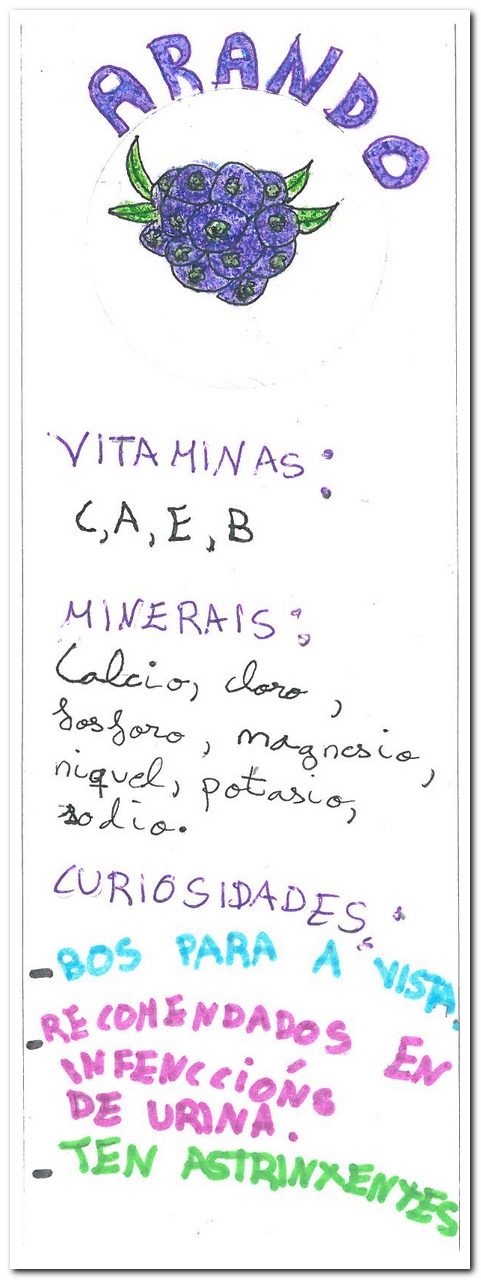 ARANDO
VITAMINAS:
C, A, E, B
MINERAIS:
Calcio, cloro,
fosforo, magnesio,
niquel, potasio,
sodio.
CURIOSIDADES:
- BOS PARA A VISTA.
- RECOMENDADOS EN
INFENCCIÓNS
DE URINA.
- TEN ASTRINXENTES